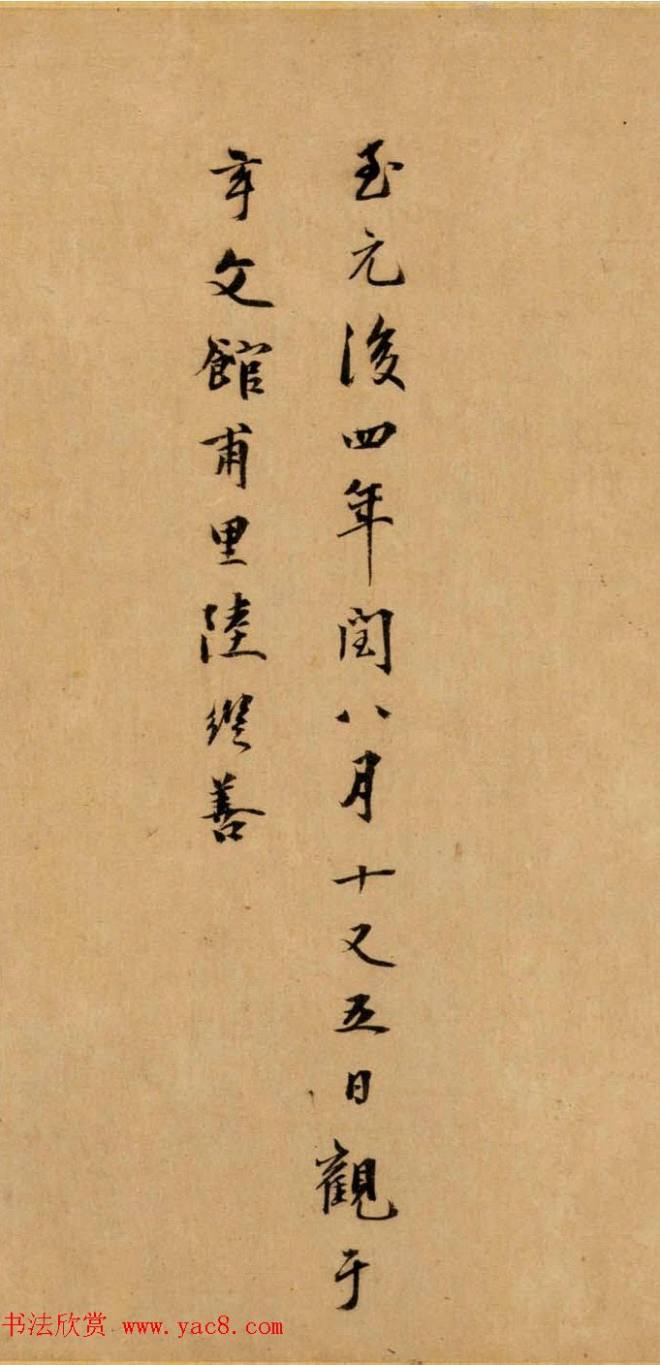 至元後四年閏八月十又五日觀于
文館甫里陸繼善
书法欣赏 www.yac8.com